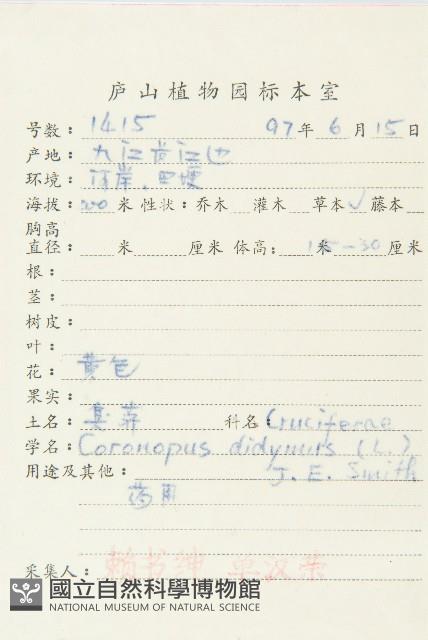 庐山植物园标本室
号数：1415 97年6月15日
产地：九江
环境：河岸、
海拔：200米 性状：乔木 灌木 草本√ 藤本
胸高
直径： 米 厘米 体高： 15-30厘米
根：
茎：
树皮：
叶：
花：黄色
果实：
土名：臭荠 科名：Cruciferae
学名：Coronopus didymus (L.)
用途及其他： J. E. Smith
药用
采集人：赖书绅 单汉荣
國立自然科學博物館
NATIONAL MUSEUM OF NATURAL SCIENCE